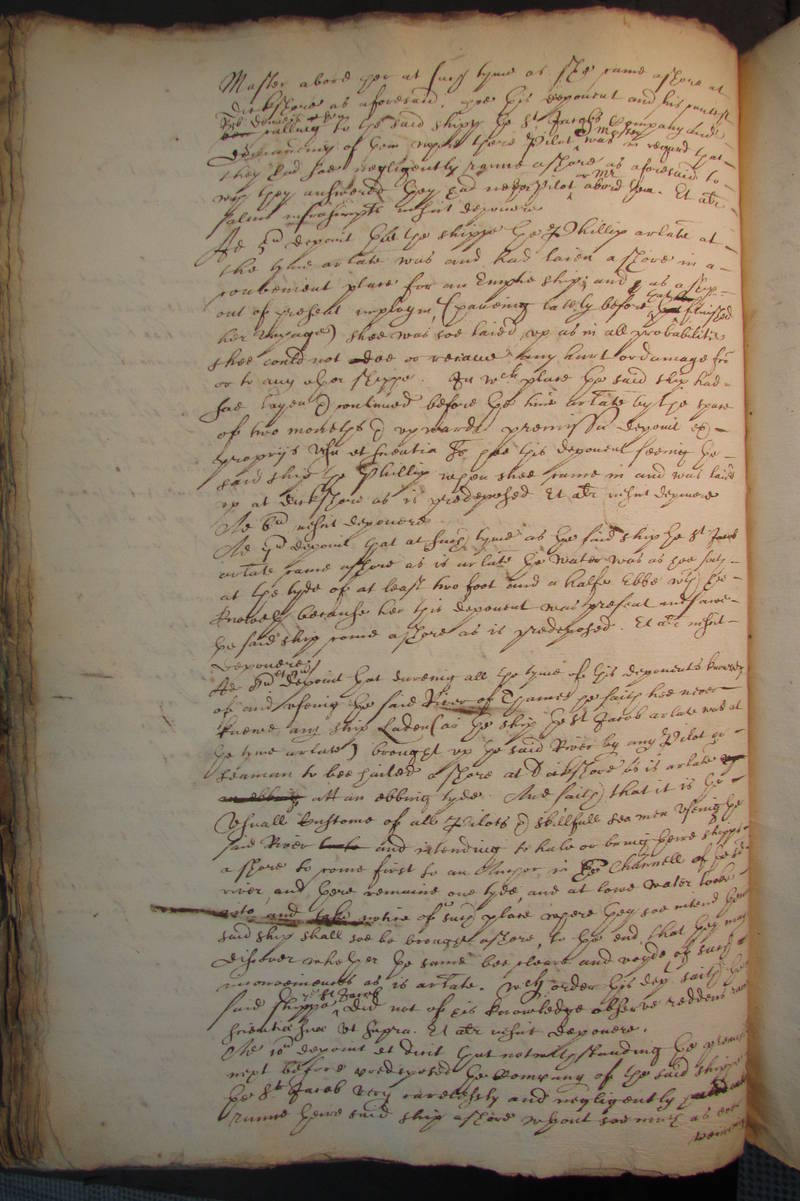 Master abord her at such tyme as shee came ashore at
dickshore as aforesaid, hee this deponent and his contest
calling to the said shipp the St Jacobs Company and
demanding of them where there Pilot or Master was in regard that
they had soe negligently runne ashore as aforesaid to
wch they answered they had nether Pilot or Mr abord her. Et alr
salvis infrascriptis nescit deponere
Ad 5um deponit that the shippe the Phillip arlate at
the tyme arlate was and had laien ashore in a
convenient place for an Emptie ship, and as a ship
out of present imploymt, (haveing lately before finished
her voyage) shee was soe laied up as in all probabilitie
shee could not doe or receive any hurt or damage from
or to any other shippe. In wch place the said ship had
soe layen & continued before the time arlate by the space
of two moneths & upwards. premissa deponit ex
proprijs visu et scientia hee this deponent seeing the
said ship the Phillip when shee came in and was laied
up at dickshore as is predeposed Et alr nescit deponere
Ad 6um nescit deponere
Ad 7um deponit that at such tyme as the said ship the St Jacob
arlate came ashore as is arlate the water was as hee saith
at the tyde of at least two foot and a halfe Ebbe wch hee
knoweth because hee this deponent was present and sawe
the said ship come ashore as is predeposed. Et alr nescit
deponere
Ad 8um et 9um deponit that dureing all the tyme of this deponents knowledg
of and useing the said River of Thames he saith hee never
knewe any ship Laden (as the ship the St Jacob arlate was at
the tyme arlate) brought up the said River by any Pilot or
seaman to bee haled ashore at Dickshore as is arlate
att an ebbing tyde. And saith that it is the
Usuall Custome of all Pilots & skillfull sea men useing the
said River and intending to hale or bring there shipps
ashore to come first to an Anchor in the Channell of the sd
river, and there remaine one tyde, and at lowe water
and take notice of such place where they soe intend there
said ship shall soe be brought ashore, to the end that they may
discover whether the same bee cleare and voyde of such
as is arlate. wch order this dept saith the
said shippe the St Jacob did not of his knowledge observe reddens
scientia sua ut supra. Et alr nescit deponere.
Ad 10um deponit et dicit that notwithstanding the premisses
next before predeposed the Company of the said shippe
the St Jacob very carelessly and negligently
runne there said ship ashore without soe much as ever